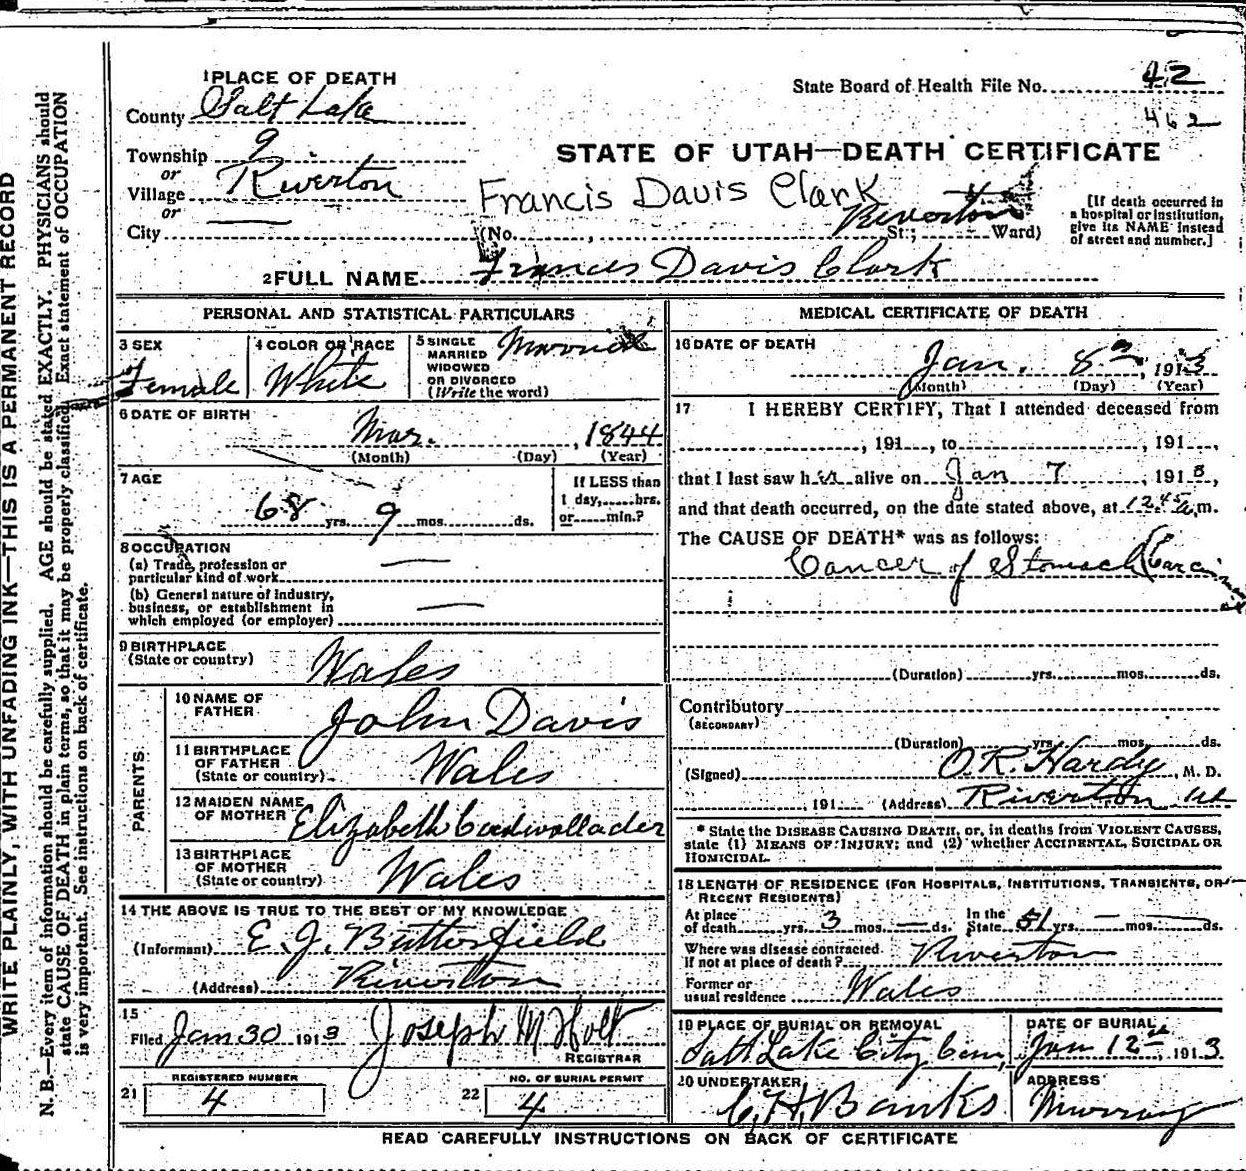 1 PLACE OF DEATH
State Board of Health File No. 42
County Salt Lake
462
Township 9
STATE OF UTAH—DEATH CERTIFICATE
or
Village Riverton
Francis Davis Clark
or
City —
(No. , Riverton St.; Ward)
[If death occurred in
a hospital or institution,
give its NAME instead
of street and number.]
2 FULL NAME Frances Davis Clark
PERSONAL AND STATISTICAL PARTICULARS
3 SEX
Female
4 COLOR OR RACE
White
5 SINGLE
MARRIED
WIDOWED
OR DIVORCED
(Write the word)
Married
6 DATE OF BIRTH
Mar. , 1844
(Month) (Day) (Year)
7 AGE
68 yrs. 9 mos. ds.
If LESS than
1 day, hrs.
or min.?
8 OCCUPATION
(a) Trade, profession or
particular kind of work —
(b) General nature of industry,
business, or establishment in
which employed (or employer) —
9 BIRTHPLACE
(State or country)
Wales
PARENTS
10 NAME OF
FATHER
John Davis
11 BIRTHPLACE
OF FATHER
(State or country)
Wales
12 MAIDEN NAME
OF MOTHER
Elizabeth Cadwallader
13 BIRTHPLACE
OF MOTHER
(State or country)
Wales
14 THE ABOVE IS TRUE TO THE BEST OF MY KNOWLEDGE
(Informant) E. J. Butterfield
(Address) Riverton
15
Filed Jan 30 1913 Joseph M Holt
REGISTRAR
REGISTERED NUMBER
21 4
NO. OF BURIAL PERMIT
22 4
MEDICAL CERTIFICATE OF DEATH
16 DATE OF DEATH
Jan. 8 , 1913
(Month) (Day) (Year)
17 I HEREBY CERTIFY, That I attended deceased from
, 191 , to , 191 ,
that I last saw her alive on Jan 7 1913,
and that death occurred, on the date stated above, at 12.45 a.m.
The CAUSE OF DEATH* was as follows:
Cancer of Stomach
(Duration) yrs. mos. ds.
Contributory
(SECONDARY)
(Duration) yrs. mos. ds.
(Signed) O. R. Hardy, M. D.
, 191 (Address) Riverton Ut
* State the DISEASE CAUSING DEATH, or, in deaths from VIOLENT CAUSES,
state (1) MEANS OF INJURY; and (2) whether ACCIDENTAL, SUICIDAL OR
HOMICIDAL.
18 LENGTH OF RESIDENCE (FOR HOSPITALS, INSTITUTIONS, TRANSIENTS, OR
RECENT RESIDENTS)
At place
of death yrs. 3 mos. — ds.
In the
State 51 yrs. — mos. — ds.
Where was disease contracted
if not at place of death? Riverton
Former or
usual residence Wales
19 PLACE OF BURIAL OR REMOVAL
Salt Lake City Cem,
DATE OF BURIAL
Jan 12th, 1913
20 UNDERTAKER
C. H. Banks
ADDRESS
Murray
READ CAREFULLY INSTRUCTIONS ON BACK OF CERTIFICATE
WRITE PLAINLY, WITH UNFADING INK—THIS IS A PERMANENT RECORD
N. B.—Every item of information should be carefully supplied. AGE should be stated EXACTLY. PHYSICIANS should
state CAUSE OF DEATH in plain terms, so that it may be properly classified. Exact statement of OCCUPATION
is very important. See instructions on back of certificate.